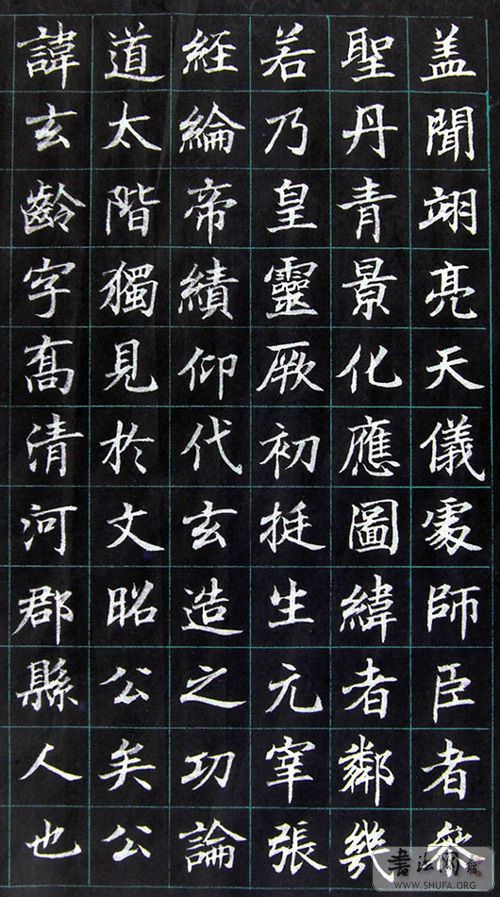 盖聞翊亮天儀寅師臣者叅
聖丹青景化應圖緯者鄰幾
若乃皇靈厥初挺生元宰張
經綸帝績仰代玄造之功論
道太階獨見於文昭公矣公
諱玄齡字髙清河郡縣人也
书法网
WWW.SHUFA.ORG